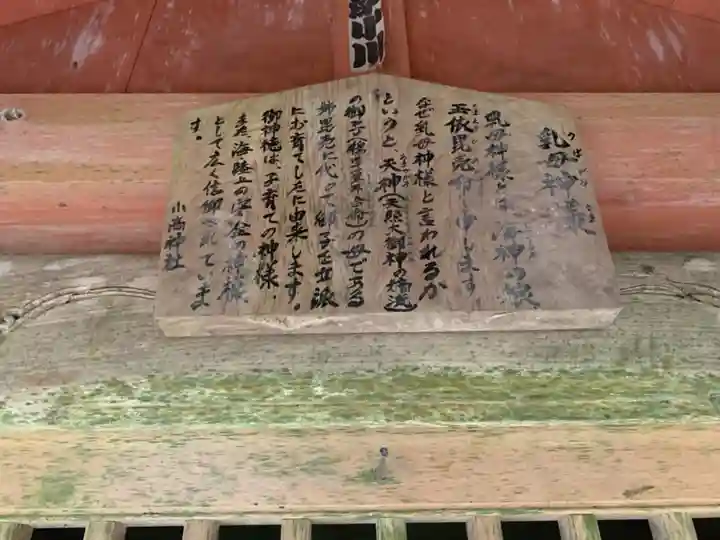 小川
乳母神様
乳母神様とは、海神の娘
玉依毘売命と申します
なぜ乳母神様と言われるか
というと、天神(天照大御神の
の御子の母である
姉毘売に代って御子を立派
にお育てしたに由来します。
御神徳は、子育ての神様、
また、海陸上の安全の神様
として広く信仰されていま
す。
小高神社